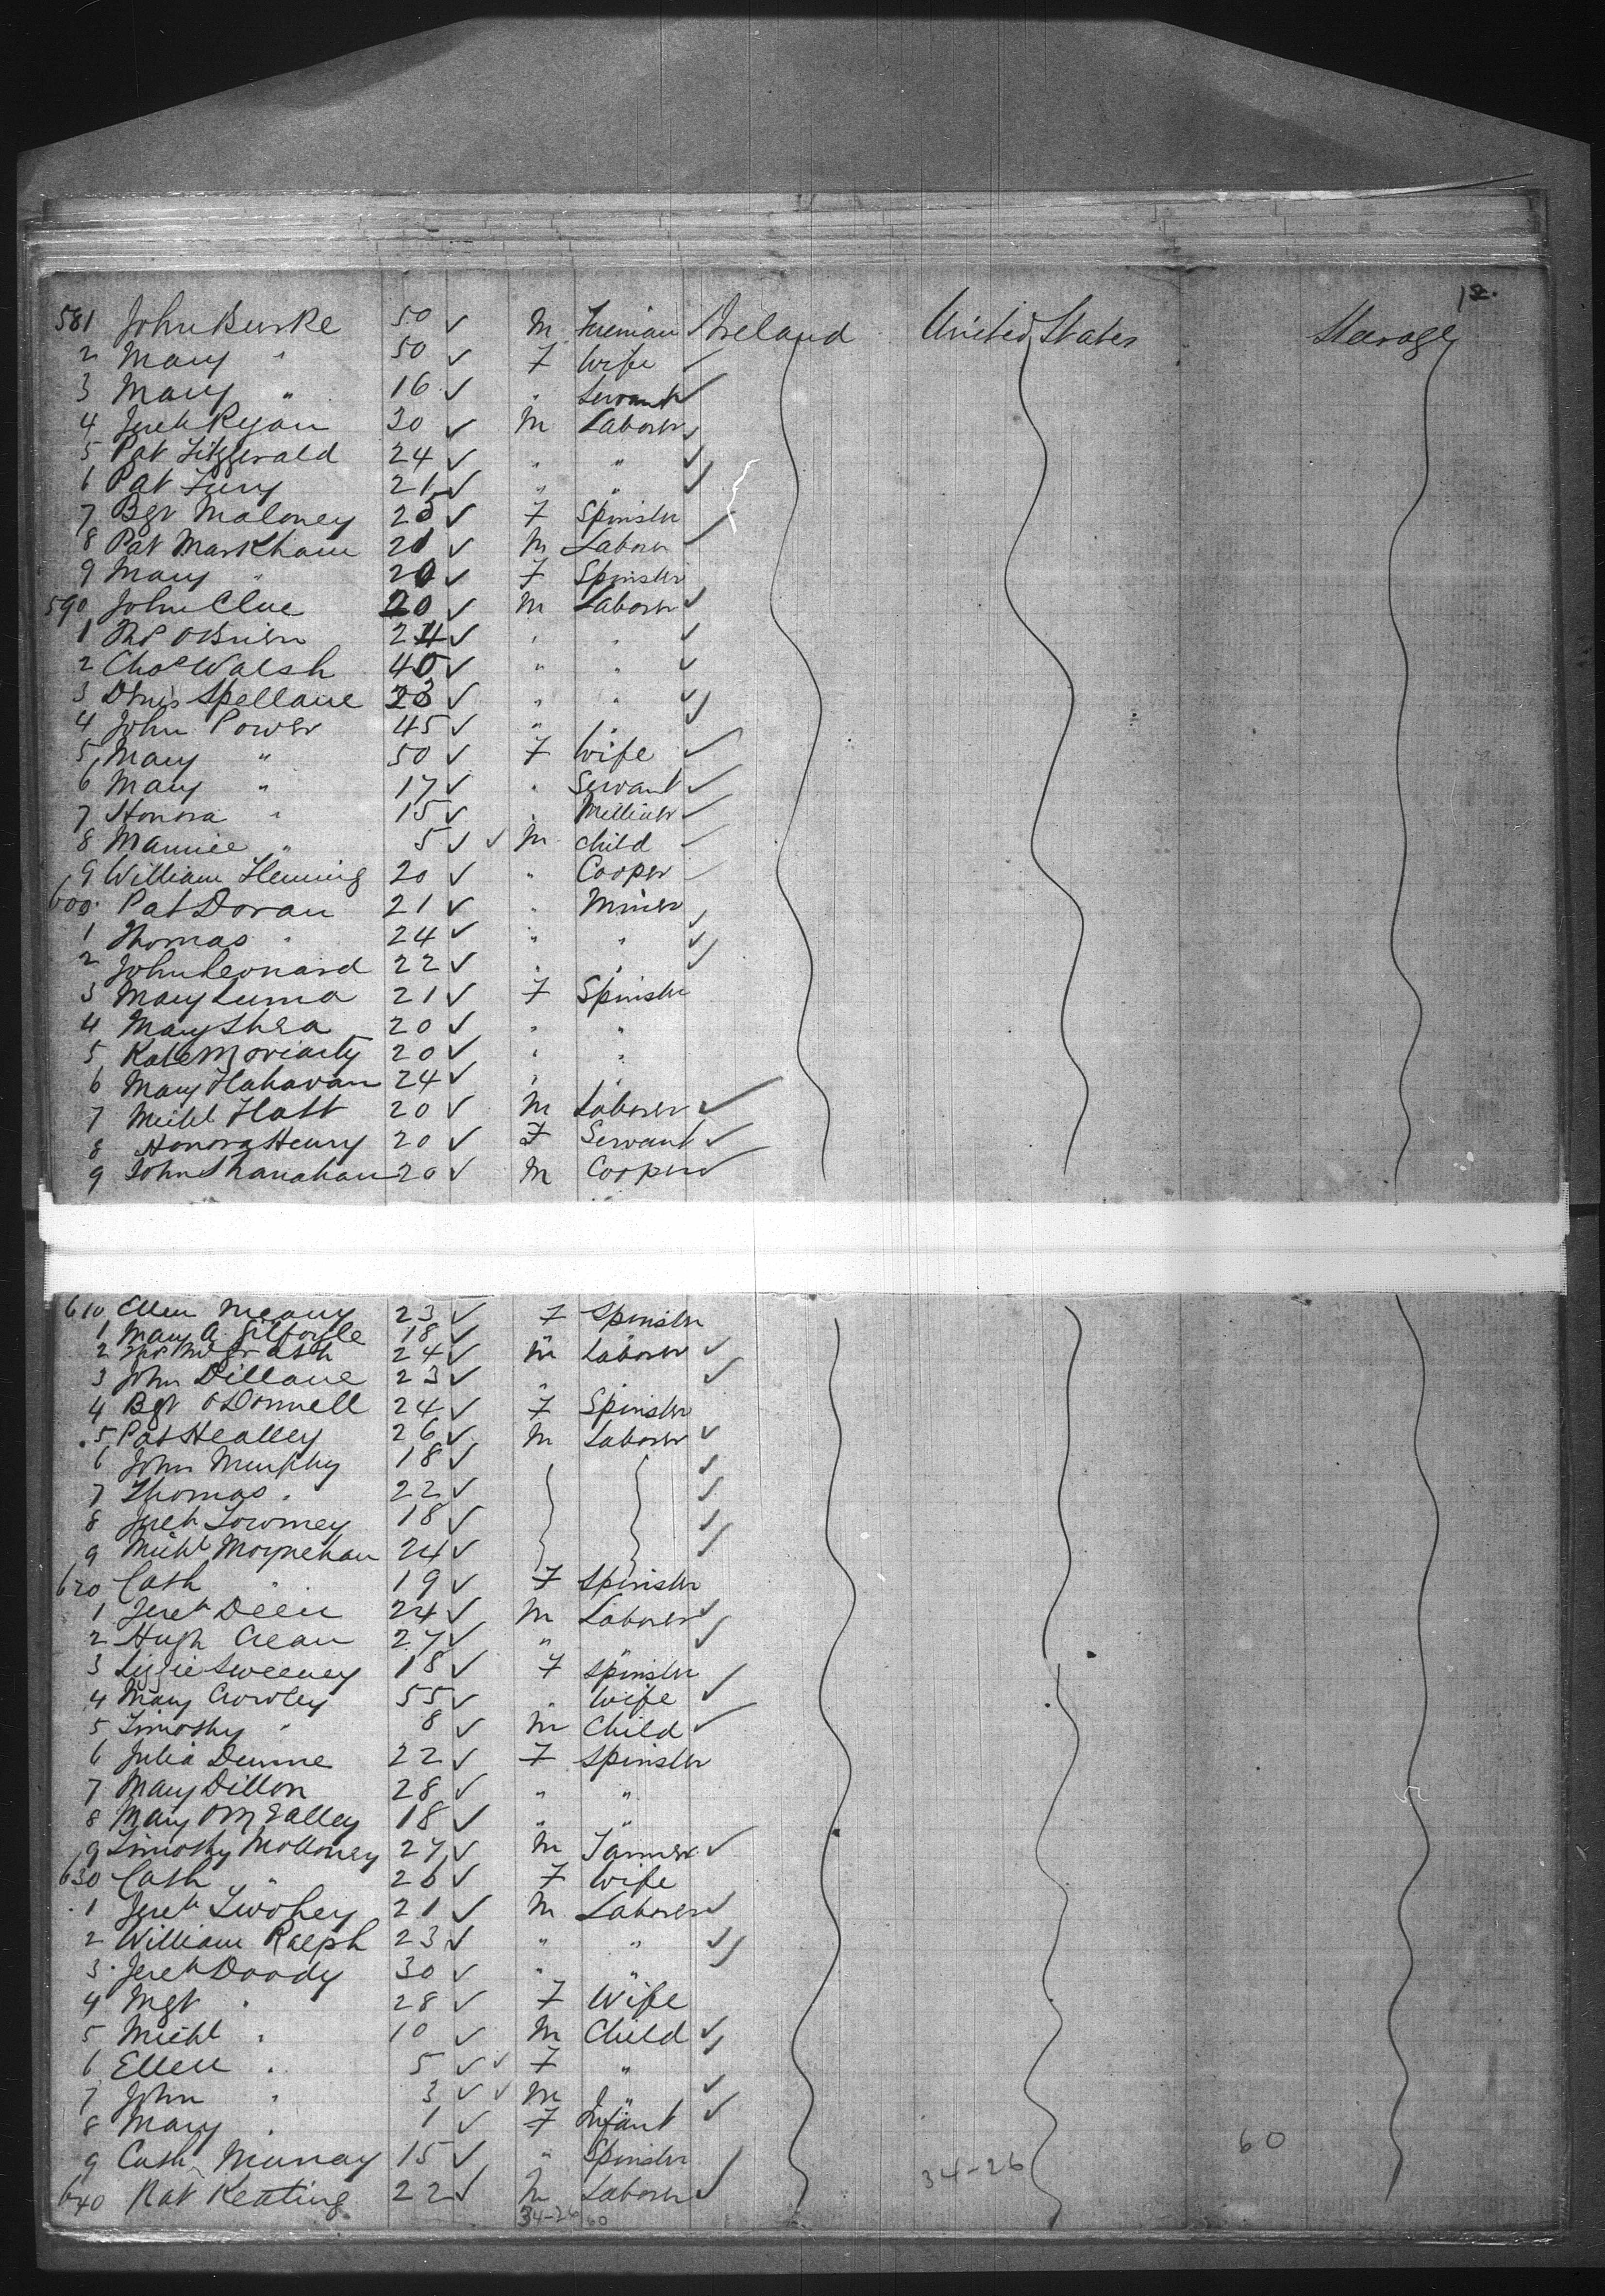 12.
581 John Burke 50 ✓ M Ireland United States Steerage
2 Mary " 50 ✓ F Wife ✓
3 Mary " 16 ✓ " Servant ✓
4 Jereh Ryan 30 ✓ M Laborer ✓
5 Pat Fitzgerald 24 ✓ " " ✓
6 Pat Fury 21 ✓ " " ✓
7 Bgt Maloney 25 ✓ F Spinster
8 Pat Markham 21 ✓ M Laborer ✓
9 Mary " 20 ✓ F Spinster
590 John Clue 20 ✓ M Laborer ✓
1 Ths OBrien 24 ✓ " " ✓
2 Chas Walsh 40 ✓ " " ✓
3 Denis Spellane 23 ✓ " " ✓
4 John Power 45 ✓ " " ✓
5 Mary " 50 ✓ F Wife ✓
6 Mary " 17 ✓ " Servant ✓
7 Honora " 15 ✓ " Milliner ✓
8 Maurice " 5 ✓ ✓ M Child ✓
9 William Fleming 20 ✓ " Cooper ✓
600 Pat Doran 21 ✓ " Miner ✓
1 Thomas " 24 ✓ " " ✓
2 John Leonard 22 ✓ " " ✓
3 Mary 21 ✓ F Spinster
4 Mary Shea 20 ✓ " "
5 Kate Moriarty 20 ✓ " "
6 Mary Flahavan 24 ✓ " "
7 Michl Flatt 20 ✓ M Laborer ✓
8 Honora Henry 20 ✓ F Servant ✓
9 John Shanahan 20 ✓ M Cooper ✓
610 Ellen Meany 23 ✓ F Spinster
1 Mary A. Gilfoyle 18 ✓ " "
2 Thos McGrath 24 ✓ M Laborer ✓
3 John Dillane 23 ✓ " " ✓
4 Bgt ODonnell 24 ✓ F Spinster
5 Pat Healley 26 ✓ M Laborer ✓
6 John Murphy 18 ✓ ✓
7 Thomas " 22 ✓ ✓
8 Jereh Towmey 18 ✓ ✓
9 Michl Moynehan 24 ✓ ✓
620 Cath " 19 ✓ F Spinster
1 Jereh Deen 24 ✓ M Laborer ✓
2 Hugh Crean 27 ✓ " " ✓
3 Lizzie Sweeney 18 ✓ F Spinster
4 Mary Crowley 55 ✓ " Wife ✓
5 Timothy " 8 ✓ M Child ✓
6 Julia Dunne 22 ✓ F Spinster
7 Mary Dillon 28 ✓ " "
8 Mary 18 ✓ " "
9 Timothy Molloney 27 ✓ M ✓
630 Cath " 26 ✓ F Wife
1 Jereh Twohey 21 ✓ M Laborer ✓
2 William Ralph 23 ✓ " " ✓
3 Jereh Doody 30 ✓ " " ✓
4 Mgt " 28 ✓ F Wife
5 Michl " 10 ✓ M Child ✓
6 Ellen " 5 ✓ ✓ F " ✓
7 John " 3 ✓ ✓ M " ✓
8 Mary " 1 ✓ F Infant ✓
9 Cath Murray 15 ✓ " Spinster
640 Pat Keating 22 ✓ M Laborer ✓
34-26 60
34-26 60